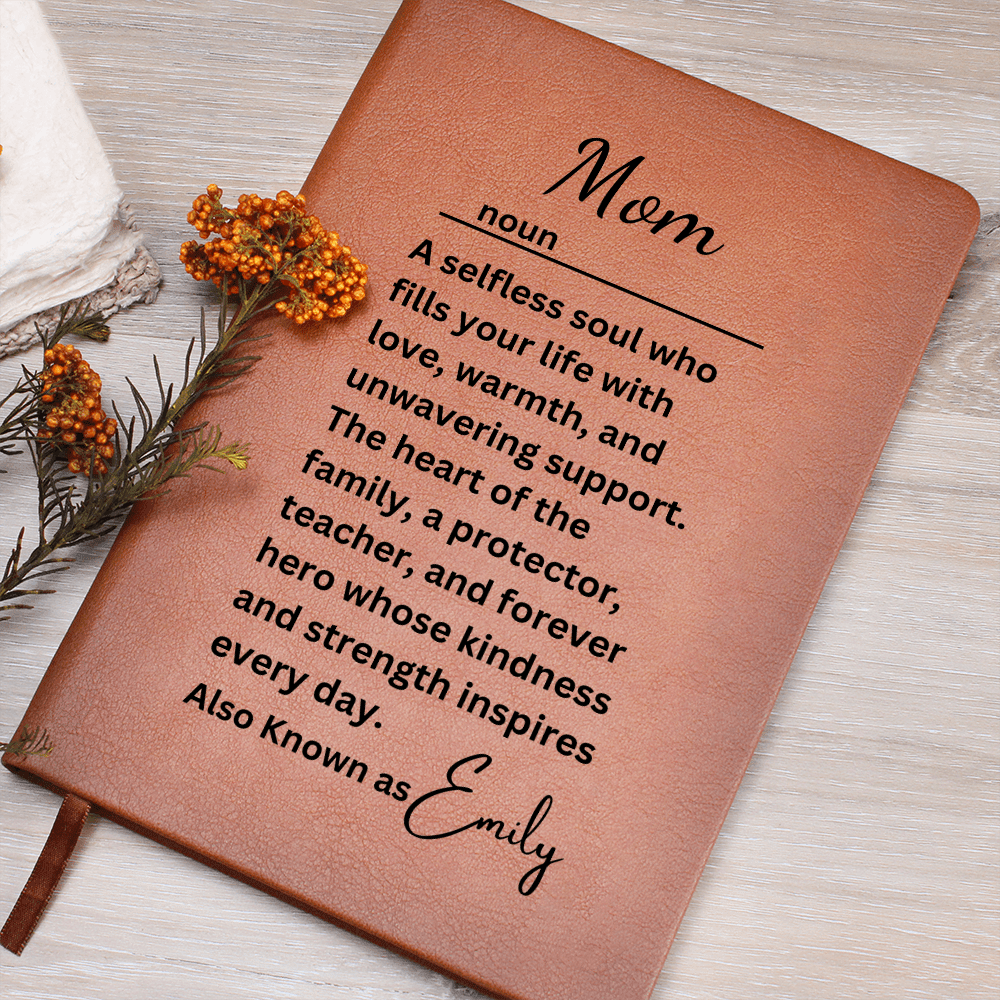 Mom
noun
A selfless soul who
fills your life with
love, warmth, and
unwavering support.
The heart of the
family, a protector,
teacher, and forever
hero whose kindness
and strength inspires
every day.
Also Known as Emily